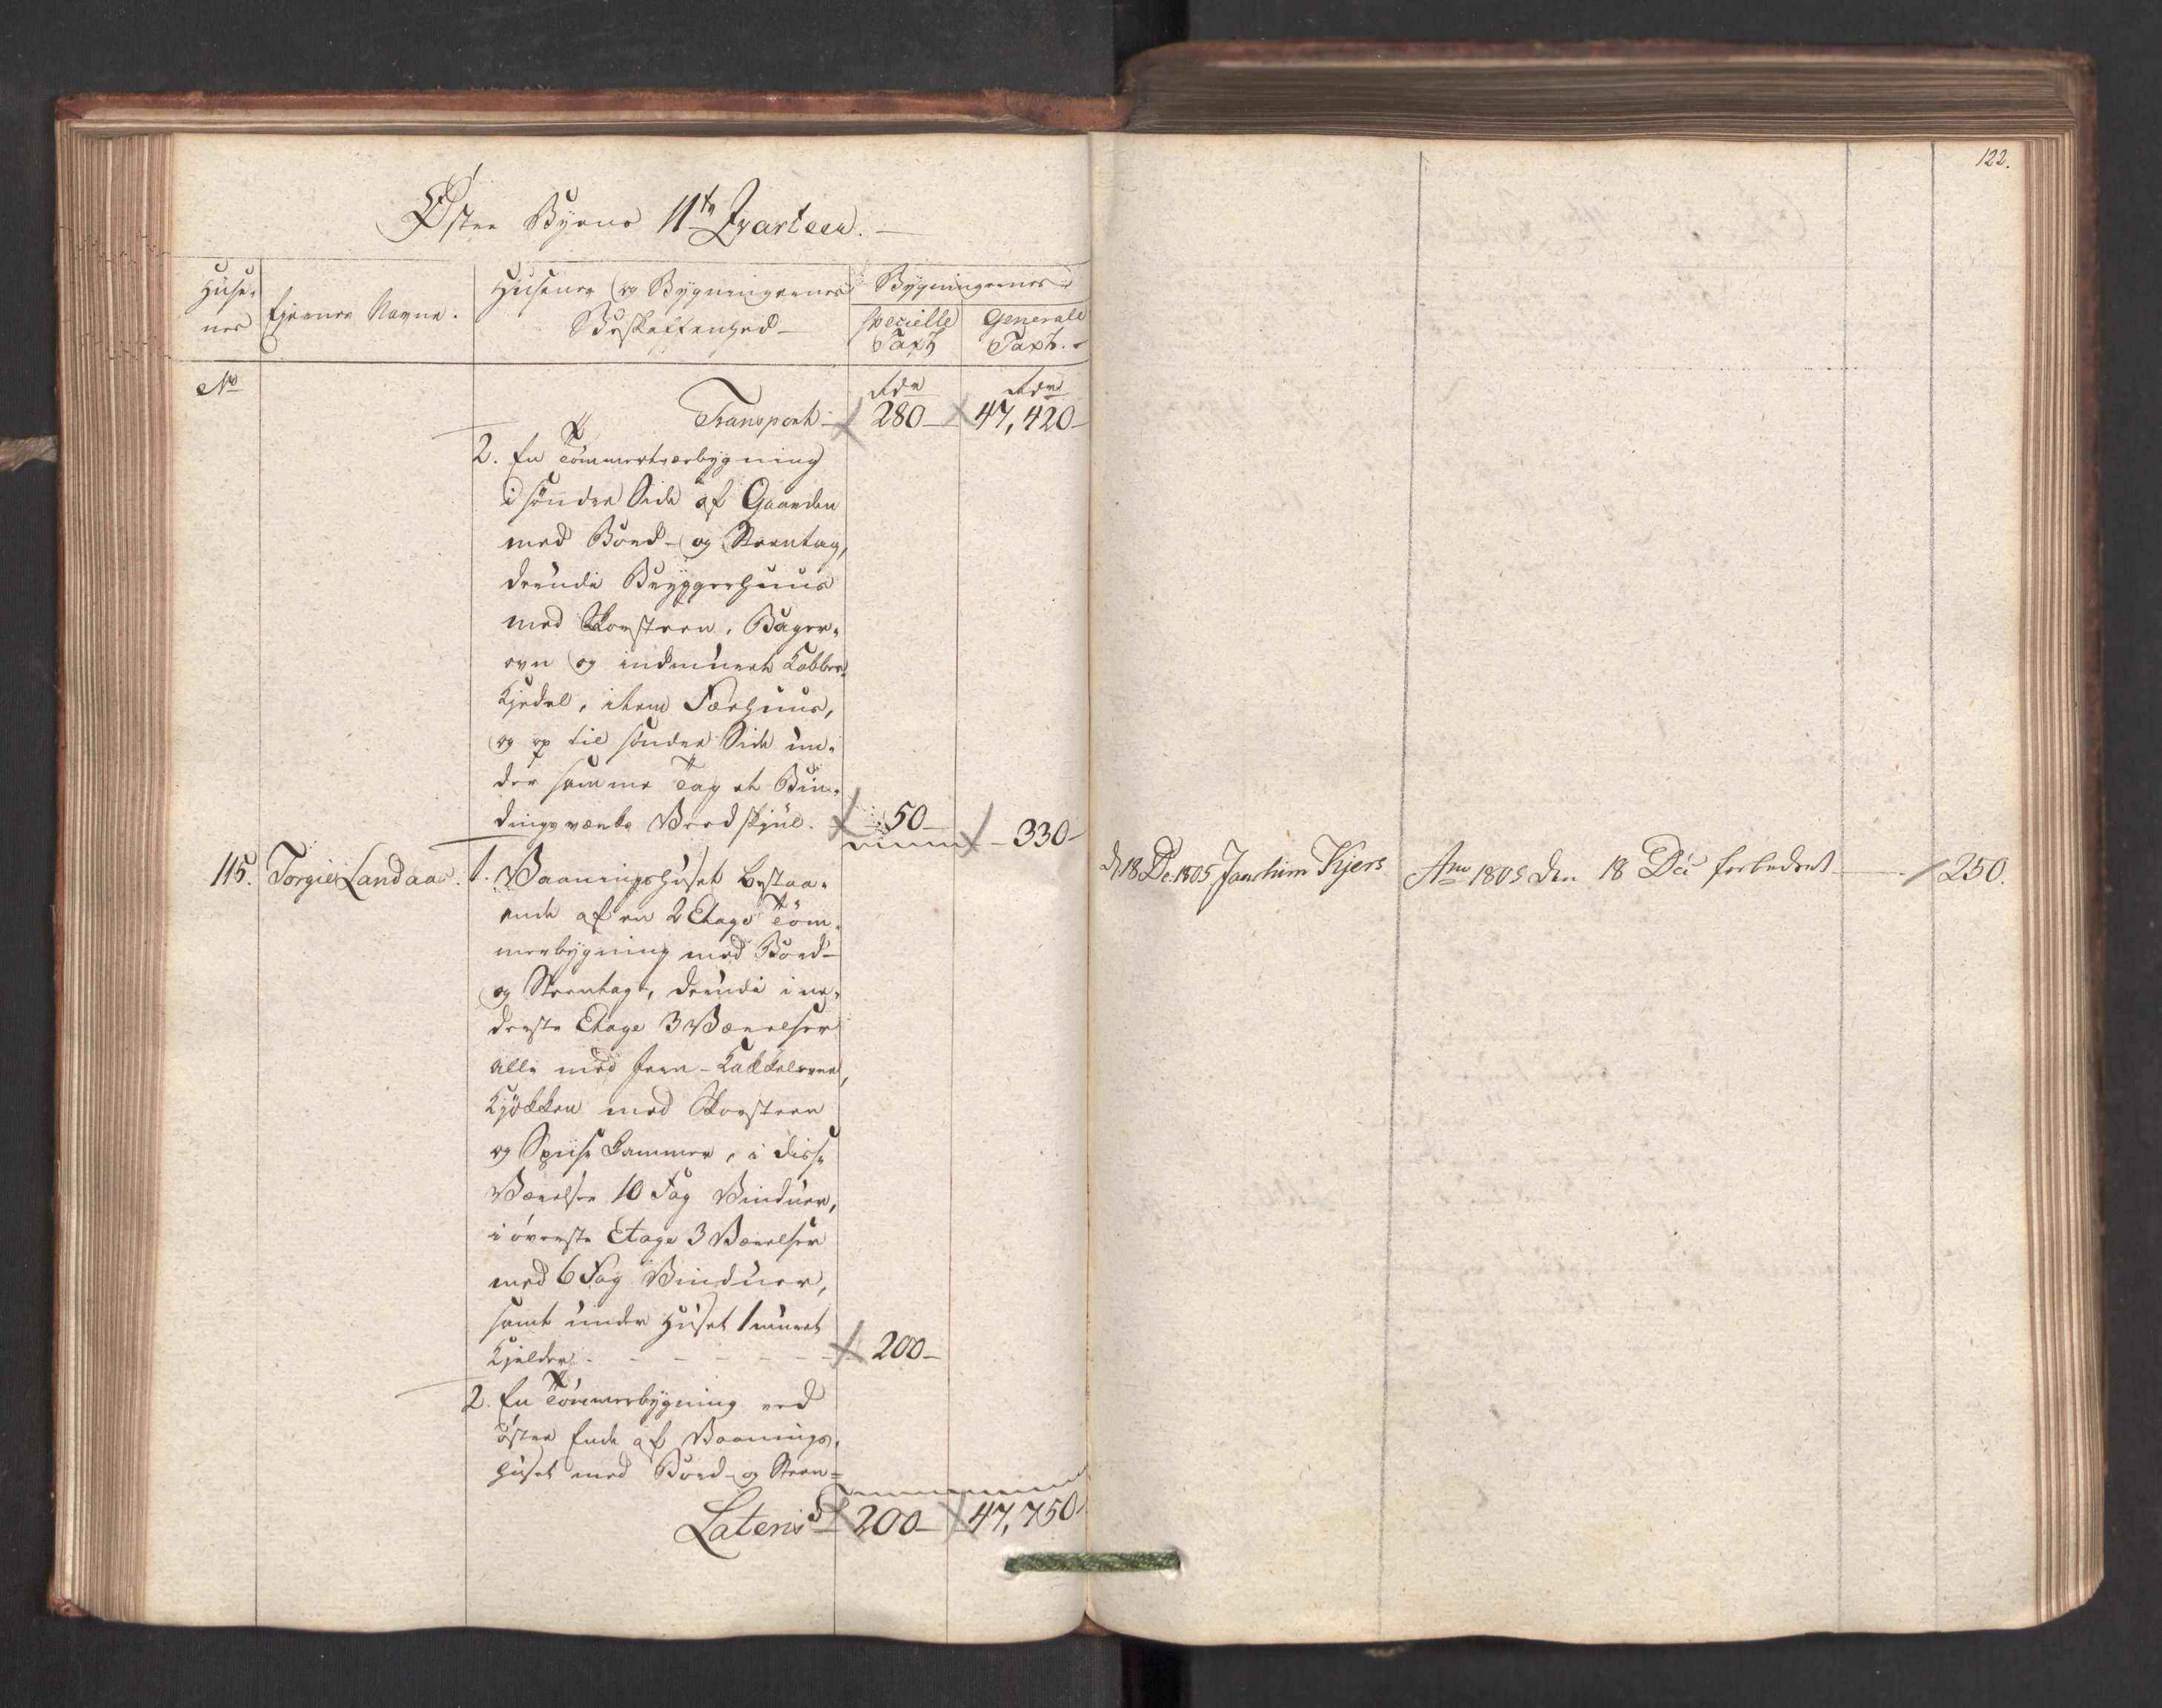 122.
Øster Byens 11te Qvarteer.
Huse- nes
Ejernes Navne.
Husenes og Bygningernes Beskaffenhed
Bygningernes
specielle Taxt
Generale Taxt.
No
Rdr Rdr
Transport 280 47,420
2. En Tømmertværbygning
i søndre Side af Gaarden
med Bord- og Steentag,
deri Bryggerhuus
med Skorsteen, Bager-
ovn og indmuret Kobber
Kjedel, item Færhuus,
og op til søndre Side un-
der samme Tag et Bin-
dingsværks Vedskjul. 50 330
115. Torgier Landaas. 1. Vaaningshuset bestaa-
ende af en 2 Etage Tøm-
merbygning med Bord-
og Steentag, deri i ne-
derste Etage 3 Værelser
alle med Jern-Kakkelovne,
Kjøkken med Skorsteen
og Spiise Kammer, i disse
Værelser 10 Fag Vinduer,
i øverste Etage 3 Værelser
med 6 Fag Vinduer,
samt under Huset 1 muret
Kjelder 200
2. En Tømmerbygning ved
østre Ende af Vaanings-
huset med Bord- og Steen-
Lateris 200 47,750
d 18 De 1805 Joachim Kjers Ano 1805 den 18 De forbedret 250.